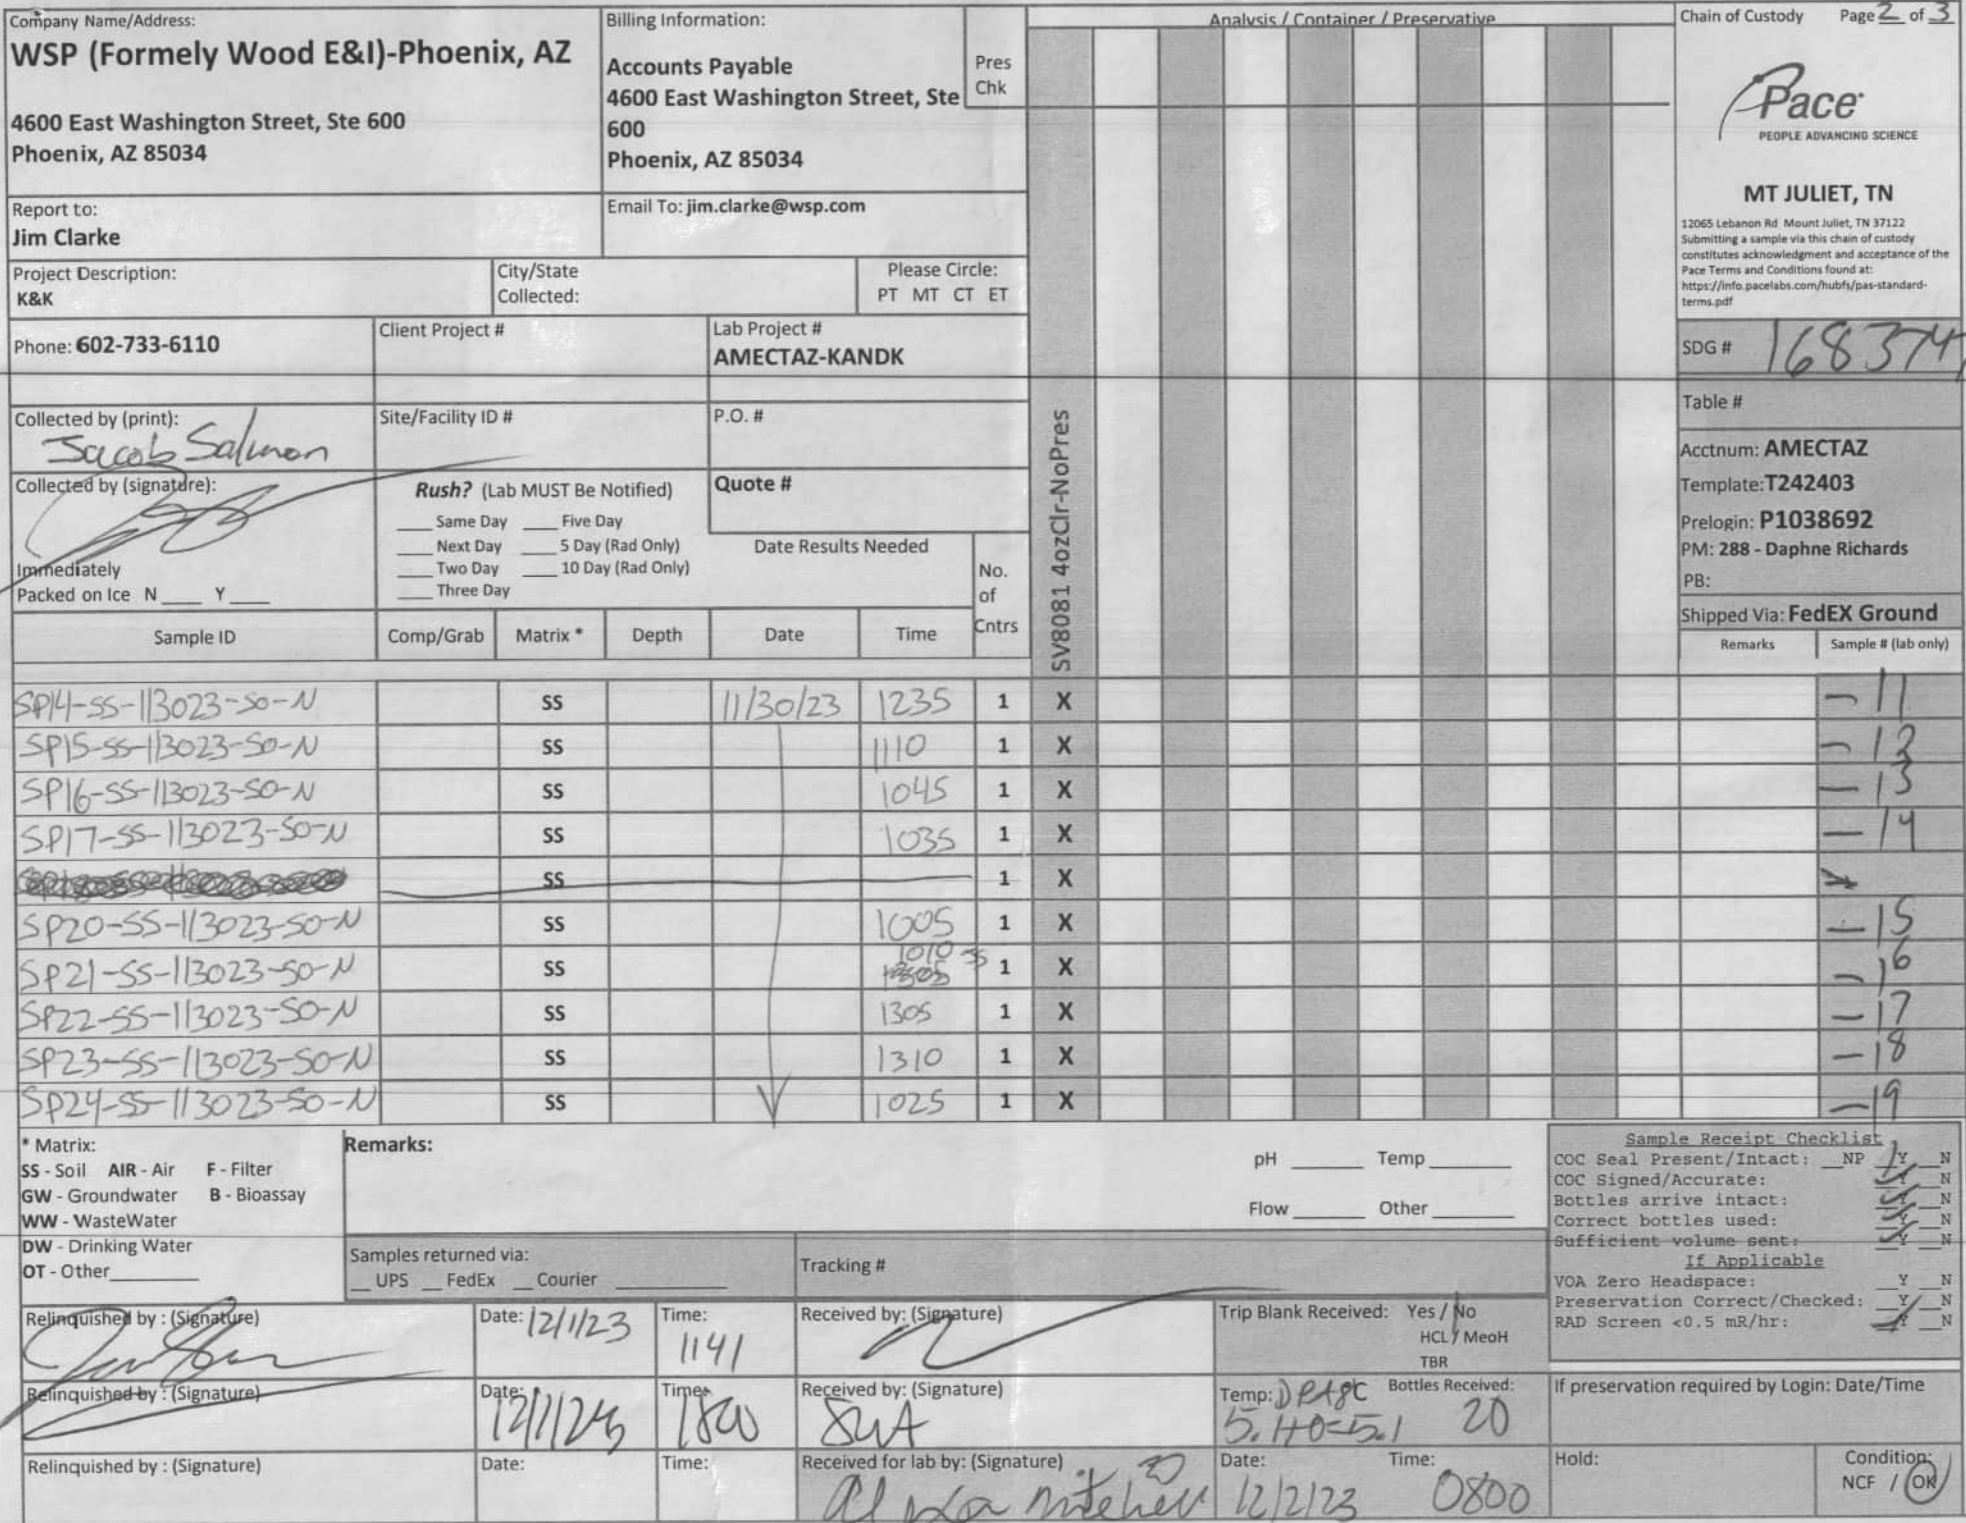 Company Name/Address:
WSP (Formely Wood E&I)-Phoenix, AZ
4600 East Washington Street, Ste 600
Phoenix, AZ 85034
Billing Information:
Accounts Payable
4600 East Washington Street, Ste
600
Phoenix, AZ 85034
Pres
Chk
Analysis / Container / Preservative
Chain of Custody Page 2 of 3
Pace
PEOPLE ADVANCING SCIENCE
MT JULIET, TN
12065 Lebanon Rd Mount Juliet, TN 37122
Submitting a sample via this chain of custody
constitutes acknowledgment and acceptance of the
Pace Terms and Conditions found at:
https://info.pacelabs.com/hubfs/pas-standard-
terms.pdf
Report to:
Jim Clarke
Email To: jim.clarke@wsp.com
Project Description:
K&K
City/State
Collected:
Please Circle:
PT MT CT ET
Phone: 602-733-6110
Client Project #
Lab Project #
AMECTAZ-KANDK
SDG # 1683741
Collected by (print):
Jacob Salmon
Site/Facility ID #
P.O. #
Table #
Acctnum: AMECTAZ
Template:T242403
Prelogin: P1038692
PM: 288 - Daphne Richards
PB:
Shipped Via: FedEX Ground
Collected by (signature):
Rush? (Lab MUST Be Notified)
Quote #
___ Same Day ___ Five Day
___ Next Day ___ 5 Day (Rad Only)
___ Two Day ___ 10 Day (Rad Only)
___ Three Day
Date Results Needed
Immediately
Packed on Ice N ___ Y ___
No.
of
Cntrs
SV8081 4ozClr-NoPres
Sample ID Comp/Grab Matrix * Depth Date Time Remarks Sample # (lab only)
SP14-SS-113023-SO-N SS 11/30/23 1235 1 X -11
SP15-SS-113023-SO-N SS 1110 1 X -12
SP16-SS-113023-SO-N SS 1045 1 X -13
SP17-SS-113023-SO-N SS 1035 1 X -14
SS 1 X
SP20-SS-113023-SO-N SS 1005 1 X -15
SP21-SS-113023-SO-N SS 1010 1 X -16
SP22-SS-113023-SO-N SS 1305 1 X -17
SP23-SS-113023-SO-N SS 1310 1 X -18
SP24-SS-113023-SO-N SS 1025 1 X -19
* Matrix:
SS - Soil AIR - Air F - Filter
GW - Groundwater B - Bioassay
WW - WasteWater
DW - Drinking Water
OT - Other
Remarks:
pH ___ Temp ___
Flow ___ Other ___
Samples returned via:
__ UPS __ FedEx __ Courier
Tracking #
Sample Receipt Checklist
COC Seal Present/Intact: __NP __Y __N
COC Signed/Accurate: __Y __N
Bottles arrive intact: __Y __N
Correct bottles used: __Y __N
Sufficient volume sent: __Y __N
If Applicable
VOA Zero Headspace: __Y __N
Preservation Correct/Checked: __Y __N
RAD Screen <0.5 mR/hr: __Y __N
Relinquished by : (Signature)
Date: 12/1/23
Time: 1141
Received by: (Signature)
Trip Blank Received: Yes / No
HCL / MeoH
TBR
Relinquished by : (Signature)
Date: 12/1/23
Time: 1800
Received by: (Signature)
Temp: °C Bottles Received:
5.1+0=5.1 20
If preservation required by Login: Date/Time
Relinquished by : (Signature)
Date:
Time:
Received for lab by: (Signature)
Date: 12/2/23
Time: 0800
Hold:
Condition:
NCF / OK